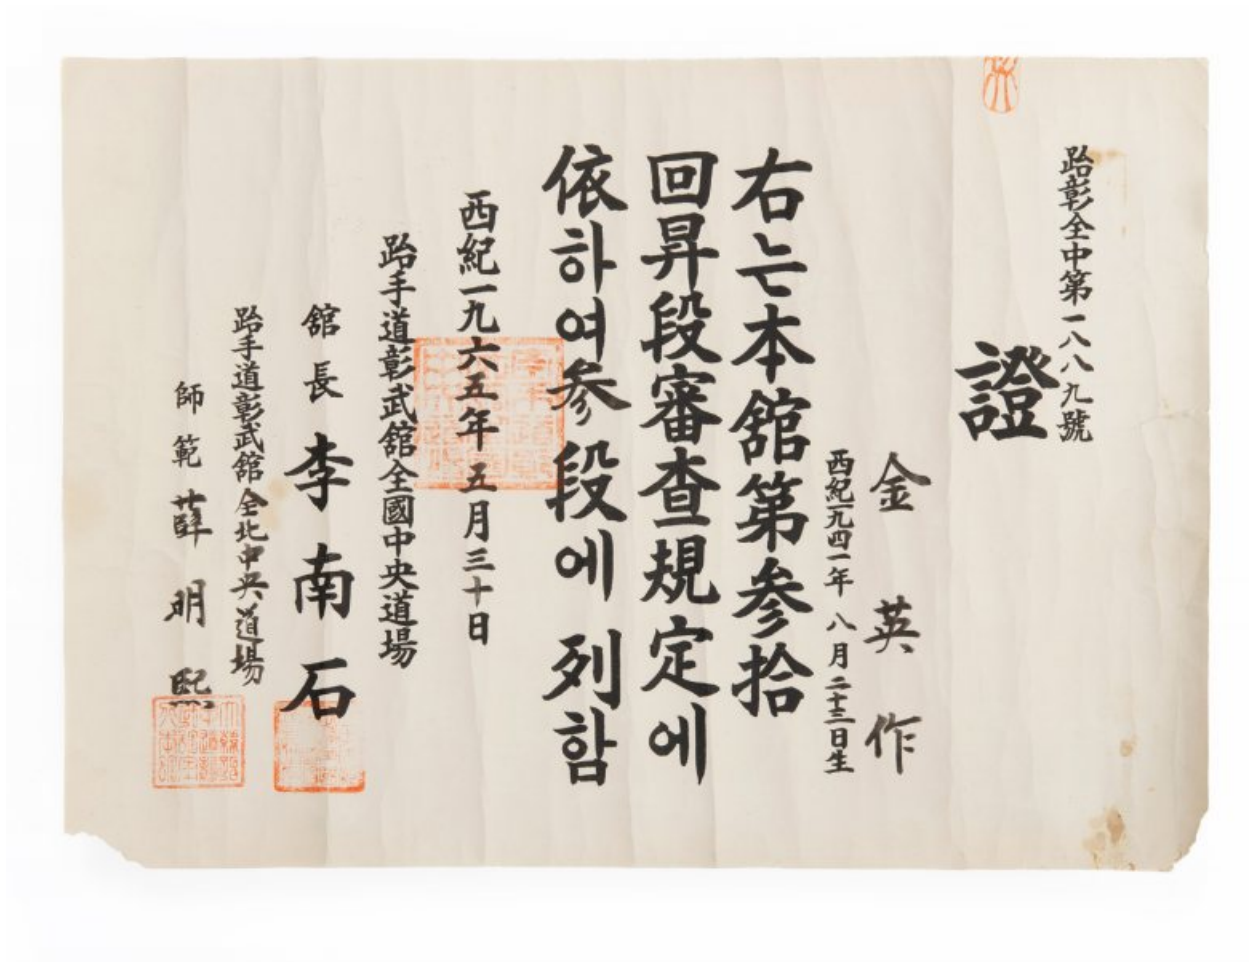 跆彰全中第一八八九號
證
金英作
西紀一九四一年八月二十三日生
右는本舘第参拾
回昇段審査規定에
依하여参段에列함
西紀一九六五年五月三十日
跆手道彰武舘全國中央道場
舘長李南石
跆手道彰武舘全北中央道場
師範薛明熙